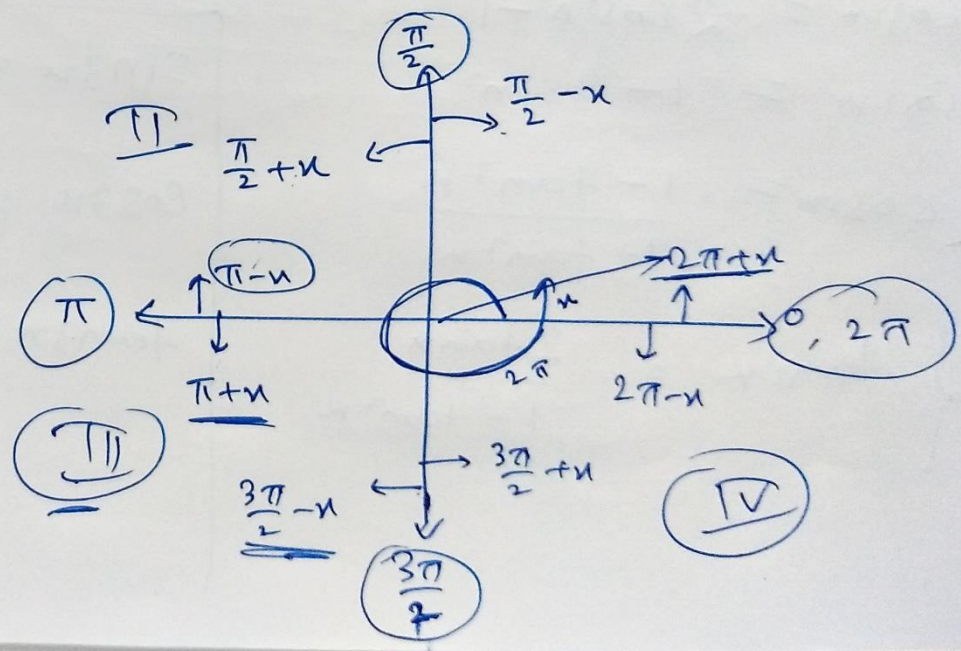 π/2
π/2 - x
II
π/2 + x
π - x
2π + x
x
π
0, 2π
2π
π + x
2π - x
III
3π/2 + x
3π/2 - x
IV
3π/2